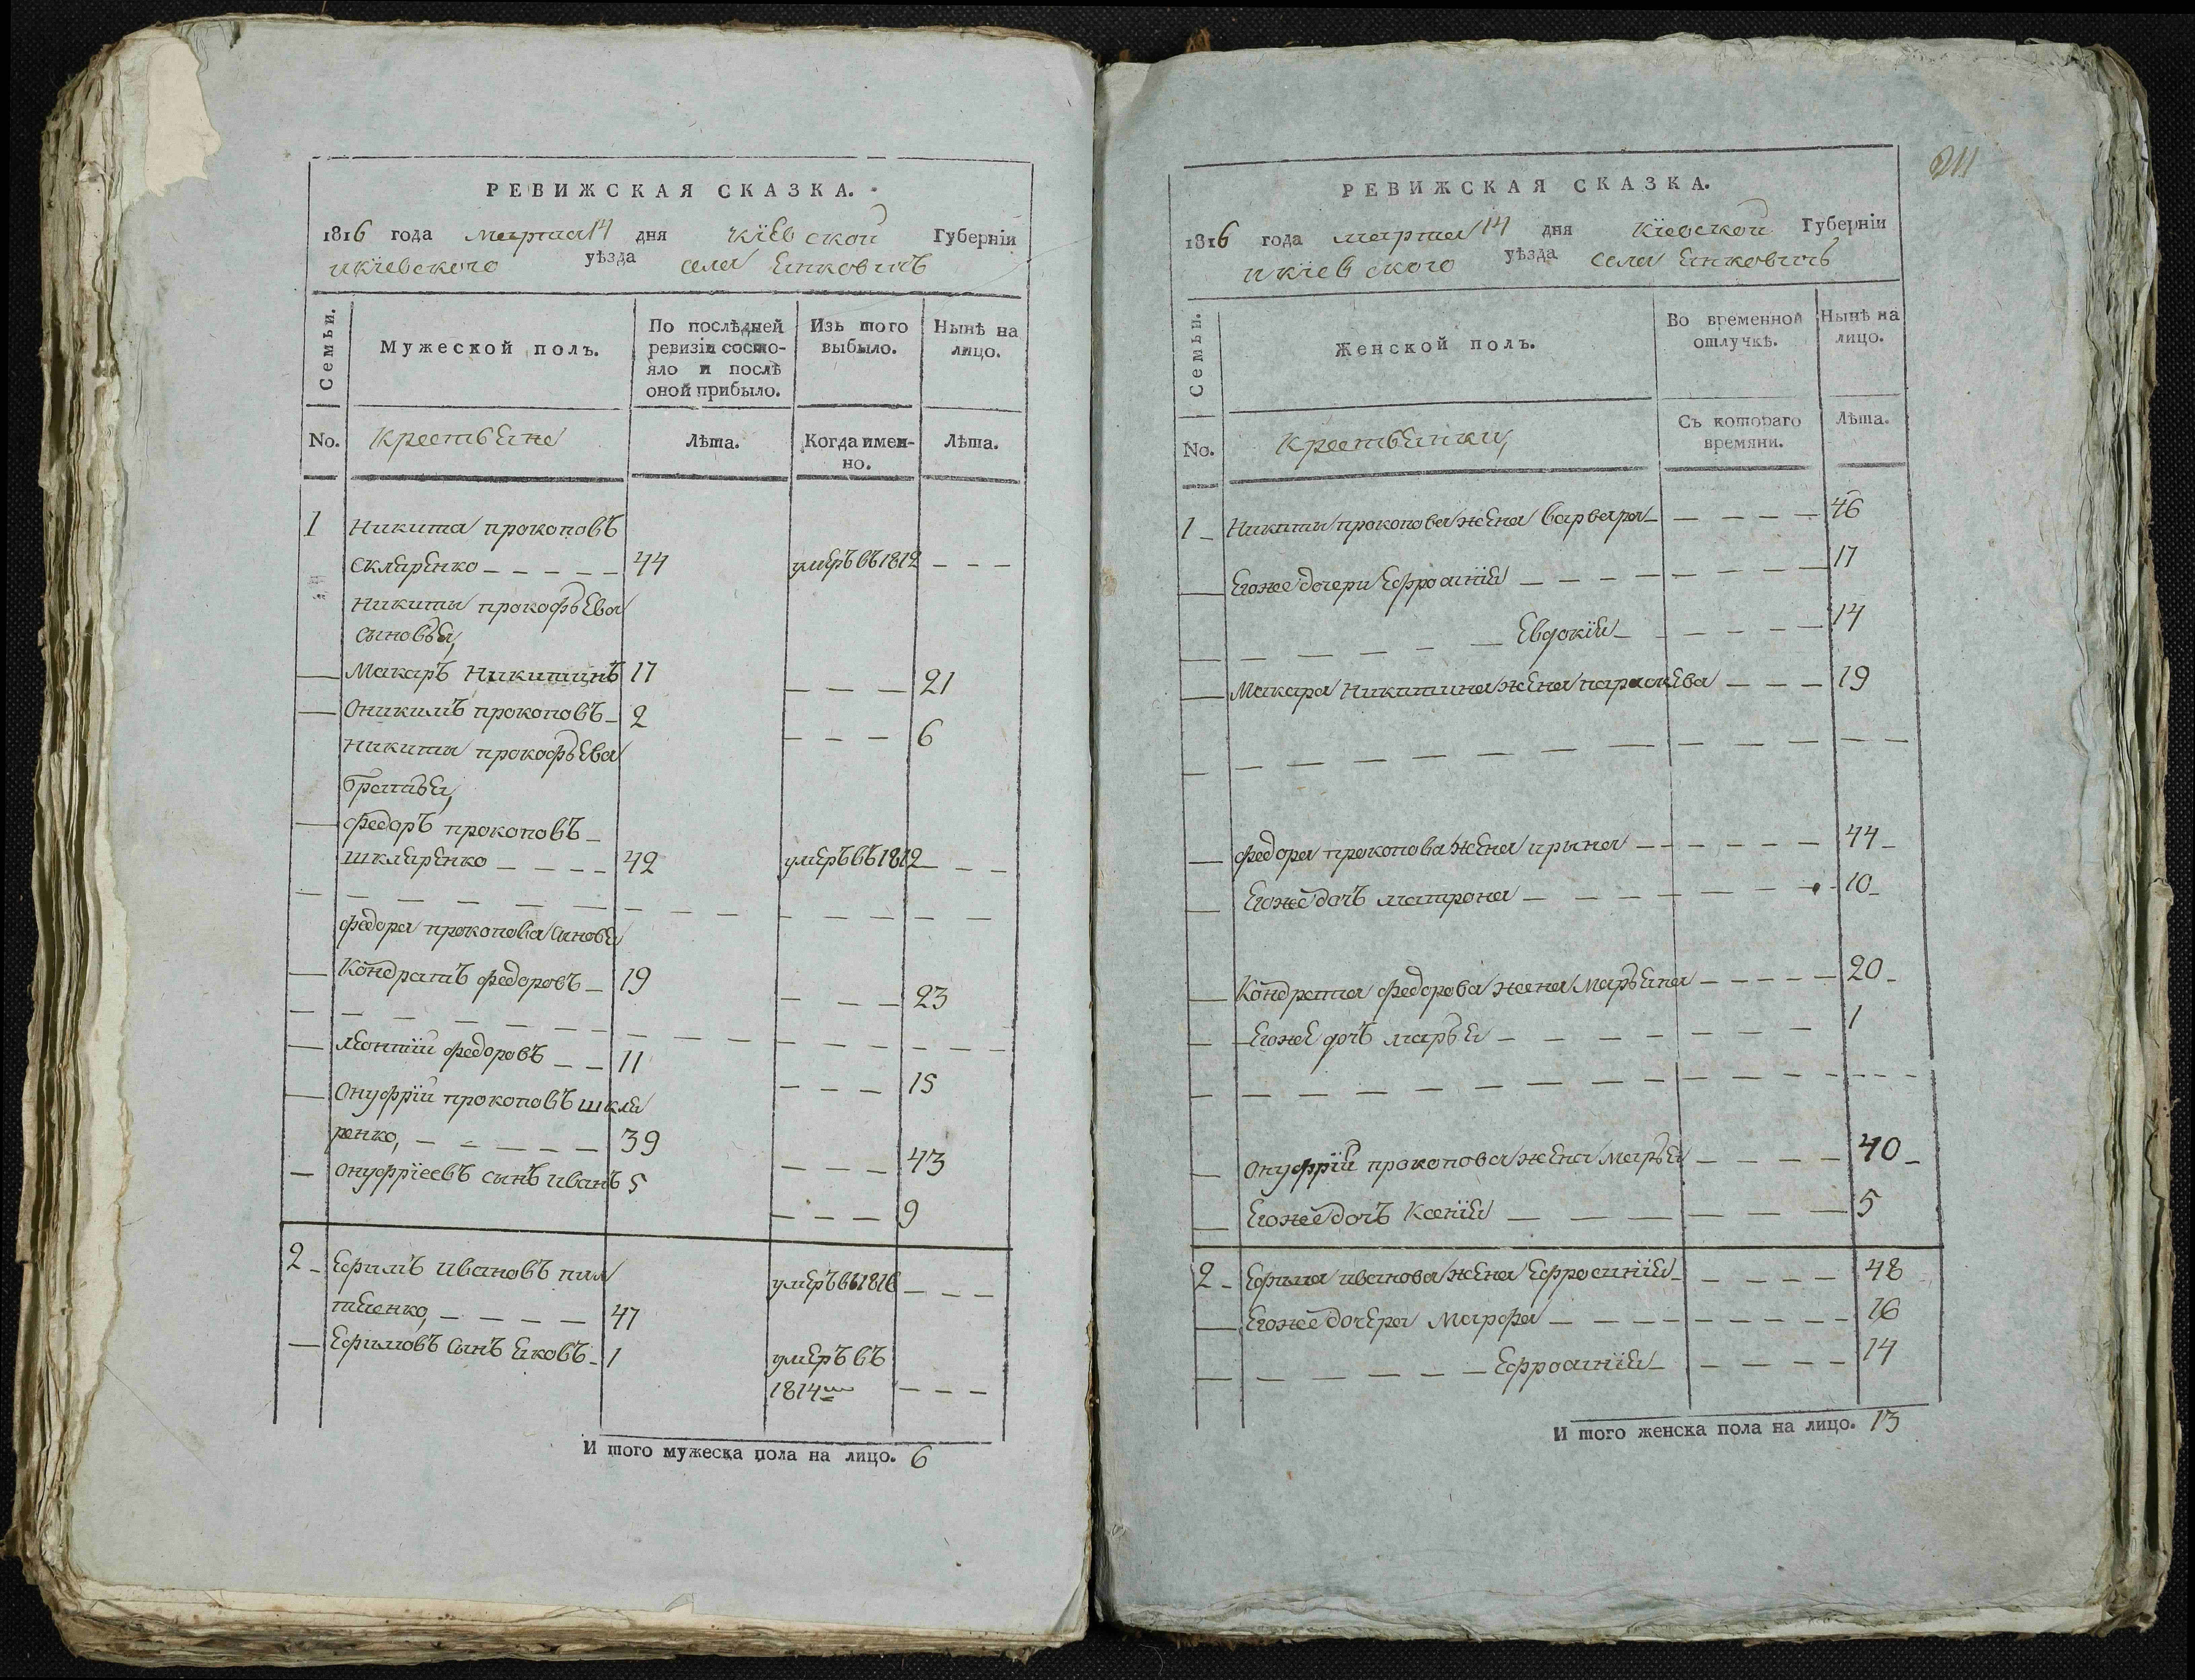 РЕВИЖСКАЯ СКАЗКА.
1816 года марта 14 дня кїевской Губернїи
икїевского уѣзда села Янковичъ
Семьи.
Мужеской полъ.
По послѣдней ревизїи состояло и послѣ оной прибыло.
Изъ того выбыло.
Нынѣ на лицо.
No. крестьяне Лѣта. Когда имен-но. Лѣта.
1 Никита прокоповъ
скляренко 44 умеръ въ 1812
Никиты прокофьева
сыновья,
Макаръ Никитинъ 17 21
Оникимъ прокоповъ 2 6
Никиты прокофьева
братья,
федоръ прокоповъ
шкляренко 42 умеръ въ 1812
федора прокопова сыновя
Кондратъ федоровъ 19 23
леонтїй федоровъ 11 15
Онуфрїй прокоповъ шкля
ренко, 39 43
онуфрїеевъ сынъ иванъ 5 9
2 Ефимъ ивановъ пил
тяенко, 47 умеръ въ 1816
Ефимовъ сынъ яковъ 1 умеръ въ
1814м
И того мужеска пола на лицо. 6
211
РЕВИЖСКАЯ СКАЗКА.
1816 года марта 14 дня кїевской Губернїи
икїевского уѣзда села Янковичъ
Семьи.
Женской полъ.
Во временной отлучкѣ.
Нынѣ на лицо.
No. крестьянки, Съ котораго времяни. Лѣта.
1 Никиты прокопова жена варвара 46
Егоже дочери Ефросинїя 17
Евдокїя 14
Макара Никитина жена параскева 19
федора прокопова жена ирына 44
Егоже дочь матрона 10
Кондрата федорова жена Марьяна 20
Егоже дочь марья 1
Онуфрїй прокопова жена Марья 40
Егоже дочь Ксенїя 5
2 Ефима иванова жена Ефросинїя 48
Егоже дочера Марфа 16
Ефросинїя 14
И того женска пола на лицо. 13